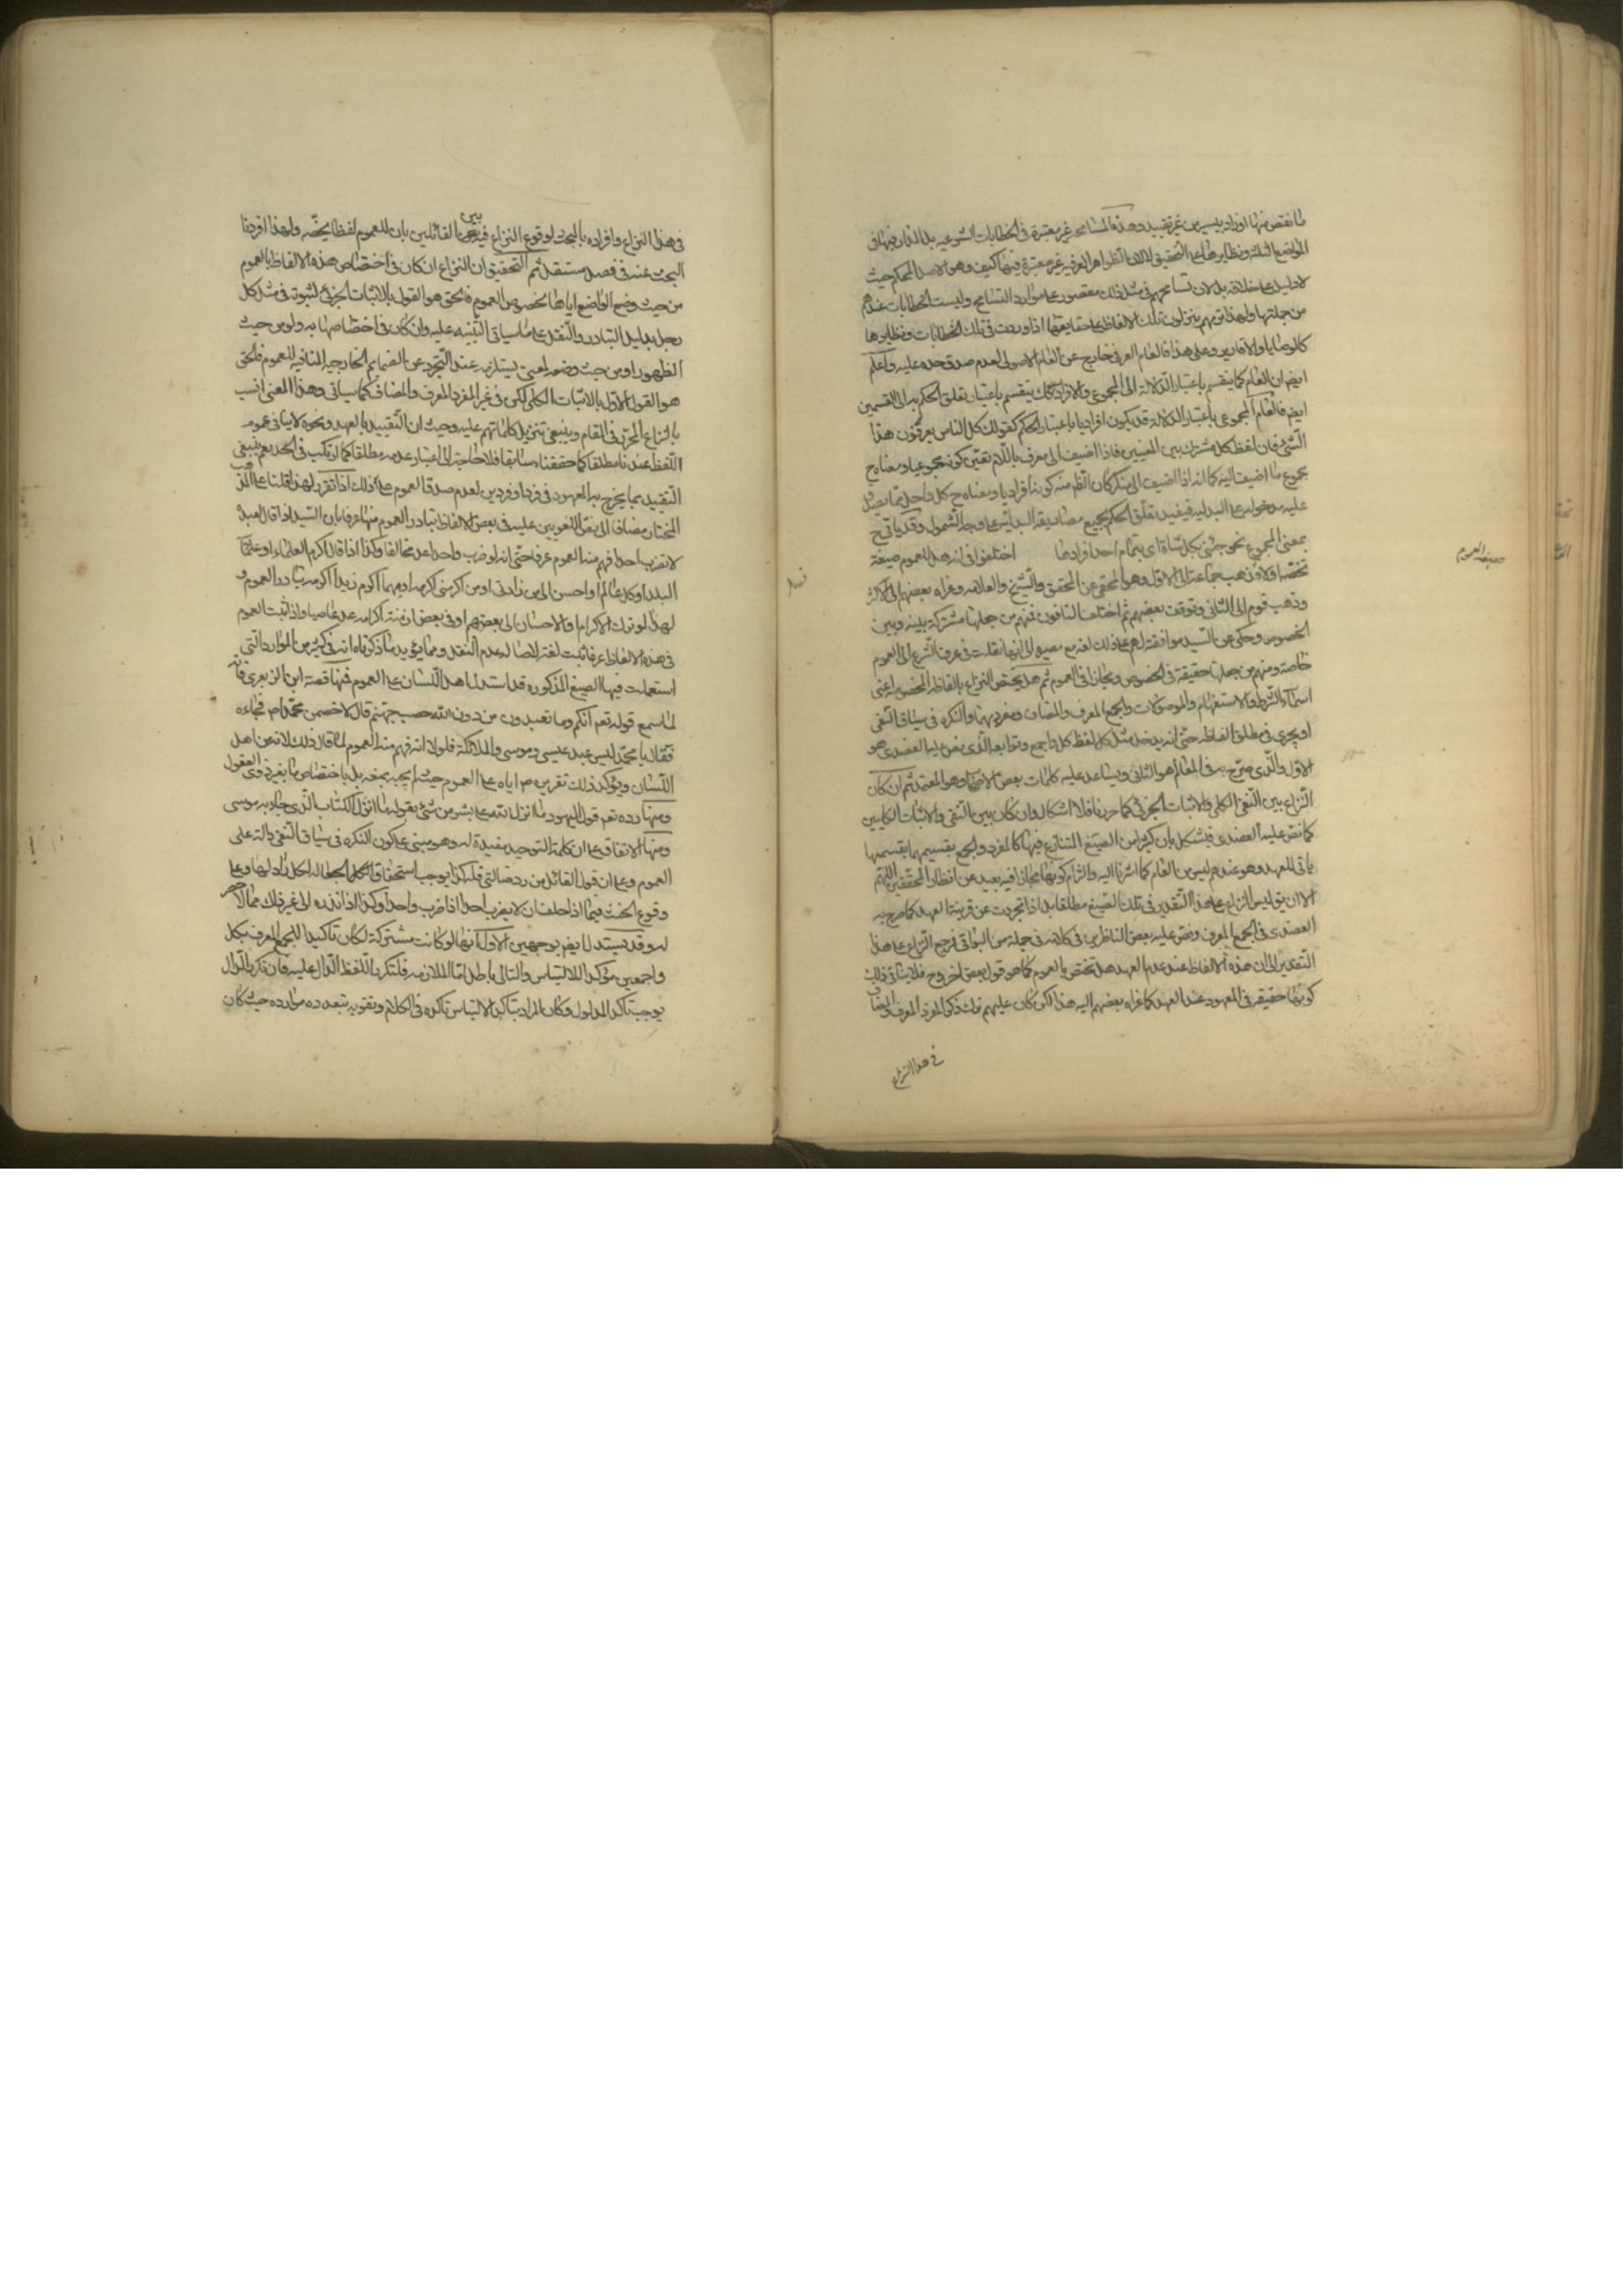 ما نقص منها او زاد بيسير من غير تقييد وهذه المسامحة غير معتبرة في الخطابات الشرعيه بل المدار فيها في
المواضع الثلثة ونظايرها على التحقيق لا لان الظواهر العرفيه غير معتبرة فيها كيف وهو الاصل المحكم حيث
لا دليل على خلافه بل لان تسامحهم في مثل ذلك مقصور على موارد التسامح وليست الخطابات عندهم
من جملتها ولهذا تريهم ينزلون تلك الالفاظ على حقايقها اذا وردت في تلك الخطابات ونظايرها
كالوصايا والاقارير وعلى هذا فالعام العرفي خارج عن العام الاصولي لعدم صدق حده عليه واعلم
ايض ان العام كما ينقسم باعتبار الدلالة الى المجموعي والافرادي كك ينقسم باعتبار تعلق الحكم به الى القسمين
ايض فالعام المجموعي باعتبار الدلالة قد يكون افراديا باعتبار الحكم كقولك كل الناس يعرفون هذا
الشئ فان لفظ كل مشترك بين المعنيين فاذا اضيف الى معرف باللام تعين كونه مجموعيا ومعناه ح
مجموع ما اضيف اليه كما انه اذا اضيف الى منكر كان الظم منه كونه افراديا ومعناه ح كل واحد مما يصدق
عليه مدخوله على البدليه فيفيد تعلق الحكم بجميع مصاديقه البدلية على وجه الشمول وقد ياتي ح
بمعنى المجموع نحو جئني بكل شاة اي بتمام احد افرادها اختلفوا في انه هل للعموم صيغة
تخصه او لا فذهب جماعة الى الاول وهو المحكي عن المحقق والشيخ والعلامه وعزاه بعضهم الى الاكثر
وذهب قوم الى الثاني وتوقف بعضهم ثم اختلف النافون فمنهم من جعلها مشتركة بينه وبين
الخصوص وحكي عن السيد موافقته لهم على ذلك لغة مع مصيره الى انها نقلت في عرف الشرع الى العموم
خاصة ومنهم من جعلها حقيقة في الخصوص ومجازا في العموم ثم هل يختص النزاع بالفاظه المخصوصه اعني
اسماء الشرط والاستفهام والموصولات والجمع المعرف والمضاف ومفرديهما والنكره في سياق النفي
او يجري في مطلق الفاظه حتى انه يدخل مثل كل لفظ كل واجمع وتوابعه الذي نص عليه العضدي هو
الاول والذي صرح به في المعالم هو الثاني ويساعد عليه كلمات بعض الاصحاب وهو المعتمد ثم ان كان
النزاع بين النفي الكلي والاثبات الجزئي كما حررنا فلا اشكال وان كان بين النفي والاثبات الكليين
كما نص عليه العضدي فيشكل بان كثيرا من الصيغ المتنازع فيها كالمفرد والجمع بقسيميهما
ياتي للعهد وهو عندهم ليس من العام كما اشرنا اليه والتزام كونها مجازا فيه بعيد عن انظار المحققين اللهم
الا ان يق ليس النزاع على هذا التقدير في تلك الصيغ مطلقا بل اذا تجردت عن قرينة العهد كما صرح به
العضدي في الجمع المعرف ونص عليه بعض الناظرين في كلامه في جملة من البواقي فيرجع النزاع على هذا
التقدير الى ان هذه الالفاظ عند عدم العهد هل تختص بالعموم كما هو قول بعض او لا فلا ينافي ذلك
كونها حقيقة في المعهود عند العهد كما عزاه بعضهم اليه هذا لكن كان عليهم ترك ذكر المفرد المعرف والمضاف
في هذا النزاع
صيغه العموم
فصل
في هذا النزاع وافراده بالبحث لوقوع النزاع فيه بين القائلين بان للعموم لفظا يخصه ولهذا افردنا
البحث عنه في فصل مستقل ثم التحقيق ان النزاع ان كان في اختصاص هذه الالفاظ بالعموم
من حيث وضع الواضع اياها بخصوص العموم فالحق هو القول بالاثبات الجزئي لثبوته في مثل كل
رجل بدليل التبادر والنقل على ما سياتي التنبيه عليه وان كان في اختصاصها به ولو من حيث
الظهور او من حيث وضعه لمعنى يستلزمه عند التجرد عن الضمايم الخارجيه المنافيه للعموم فالحق
هو القول الاول بالاثبات الكلي لكن في غير المفرد المعرف والمضاف كما سياتي وهذا المعنى انسب
بالنزاع المحرر في المقام وينبغي تنزيل كلماتهم عليه وحيث ان التقييد بالعهد ونحوه لا ينافي عموم
اللفظ عندنا مطلقا كما حققناه سابقا فلا حاجة الى اعتبار عدمه مطلقا كما ارتكب في الحد نعم ينبغي
التقييد بما يخرج به المعهود في فرد او فردين لعدم صدق العموم على ذلك اذا تقرر هذا فلنا على المذهب
المختار مضافا الى نص اللغويين عليه في بعض الالفاظ تبادر العموم منها عرفا بان السيد اذا قال لعبده
لا تضرب احدا فهم منه العموم عرفا حتى انه لو ضرب واحدا عد مخالفا وكذا اذا قال اكرم العلماء او علماء
البلد او كل عالم او احسن الى من زارني او من اكرمني اكرمه او مهما اكرم زيدا اكرمه تبادر العموم و
لهذا لو ترك الاكرام او الاحسان الى بعضهم او في بعض ازمنة اكرامه عد عاصيا واذا ثبت العموم
في هذه الالفاظ عرفا ثبت لغة لاصالة عدم النقل ومما يؤيد ما ذكرناه انه في كثير من الموارد التي
استعملت فيها الصيغ المذكوره قد استدل اهل اللسان على العموم فمنها قصة ابن الزبعرى فانه
لما سمع قوله تعم انكم وما تعبدون من دون الله حصب جهنم قال لاخصمن محمدا ص فجاءه
فقال يا محمد اليس عبد عيسى وموسى والملائكة فلولا انه فهم منه العموم لما قال ذلك لانه من اهل
اللسان ويؤكد ذلك تقريره ص اياه على العموم حيث لم يجبه بمنعه بل باختصاص ما بغير ذوي العقول
ومنها رده تعم قول اليهود ما انزل الله على بشر من شئ بقوله من انزل الكتاب الذي جاء به موسى
ومنها الاتفاق على ان كلمة التوحيد مفيدة له وهو مبني على كون النكره في سياق النفي دالة على
العموم وعلى ان قول القائل من رد ضالتي فله كذا يوجب استحقاق الجعالة لكل راد لها وعلى
وقوع الحنث فيما اذا حلف ان لا يضرب احدا اذا ضرب واحدا وكذا اذا نذره الى غير ذلك مما لا حصر
له وقد يستدل ايض بوجهين الاول انها لو كانت مشتركة لكان تاكيد الجمع المعرف بكل
واجمعين مؤكدا للالتباس والتالي باطل اما الملازمه فلتكرر اللفظ الدال عليه فان تكرر الدال
يوجب تاكد المدلول وكان المراد بتاكد الالتباس تاكده في الكلام وتقويه بتعدد موارده حيث كان